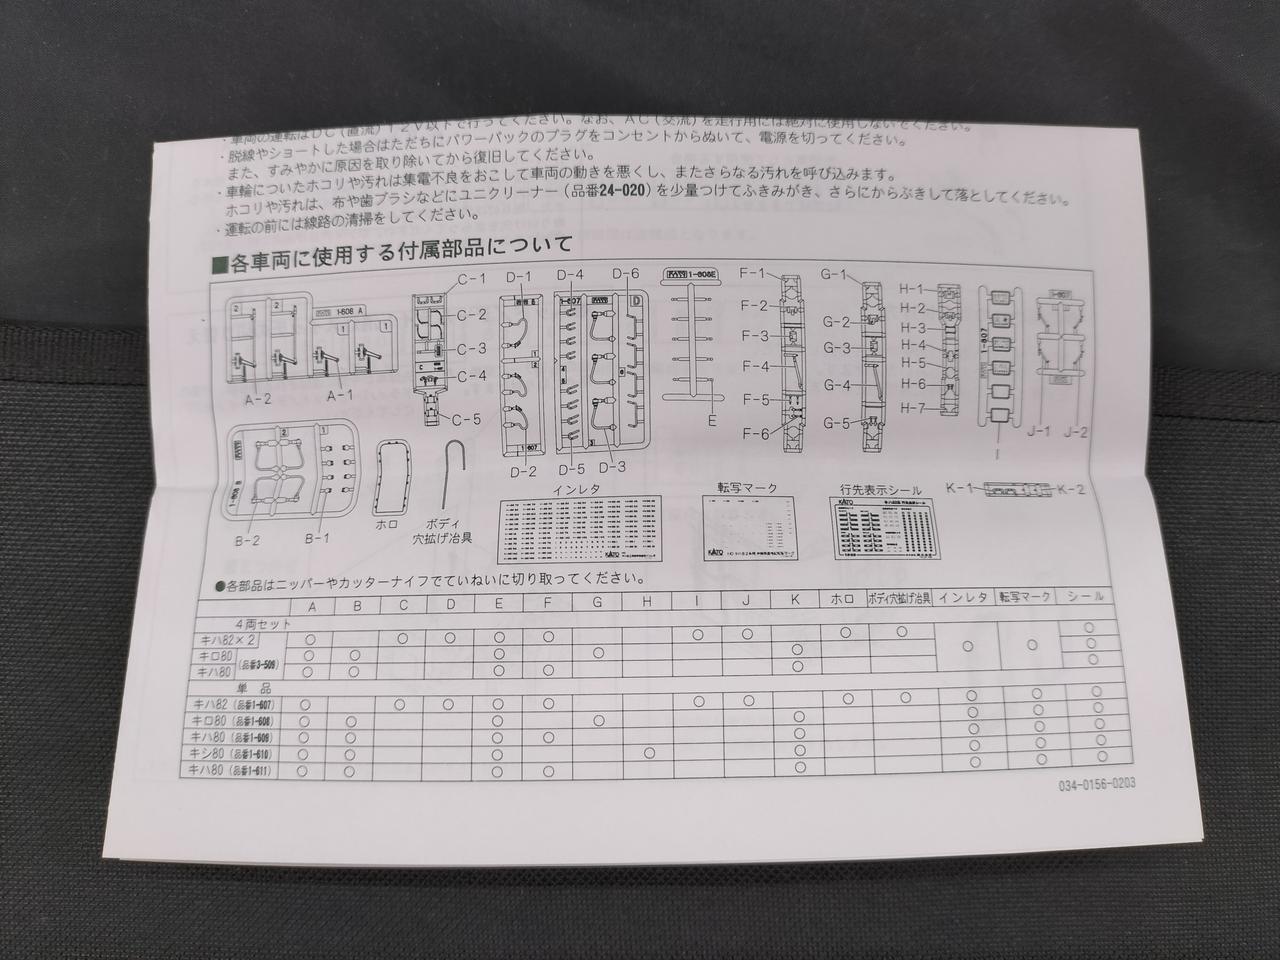 ・車両の運転はDC(直流)12V以下で行ってください。なお、AC(交流)を走行用には絶対に使用しないでください。
・脱線やショートした場合はただちにパワーパックのプラグをコンセントからぬいて、電源を切ってください。
また、すみやかに原因を取り除いてから復旧してください。
・車輪についたホコリや汚れは集電不良をおこして車両の動きを悪くし、またさらなる汚れを呼び込みます。
ホコリや汚れは、布や歯ブラシなどにユニクリーナー(品番24-020)を少量つけてふきみがき、さらにからぶきして落としてください。
・運転の前には線路の清掃をしてください。
■各車両に使用する付属部品について
2 2 KATO 1-608 A 1 1
A-2 A-1
C-1
C-2
C-3
C-4
C-5
C
D-1 D-4 D-6
1-607 KATO D
D-2 D-5 D-3
KATO 1-608E
E
F-1
F-2
F-3
F-4
F-5
F-6
G-1
G-2
G-3
G-4
G-5
H-1
H-2
H-3
H-4
H-5
H-6
H-7
1-607
I
1-607
J-1 J-2
KATO 2 1
1-608 B
B-2 B-1
ホロ
ボディ
穴拡げ冶具
インレタ
KATO
転写マーク
KATO
行先表示シール
KATO
K-1 K-2
●各部品はニッパーやカッターナイフでていねいに切り取ってください。
A B C D E F G H I J K ホロ ボディ穴拡げ冶具 インレタ 転写マーク シール
4両セット
キハ82×2 ○ ○ ○ ○ ○ ○ ○ ○ ○ ○ ○ ○
キロ80 (品番3-509) ○ ○ ○ ○ ○ ○
キハ80 ○ ○ ○ ○ ○ ○
単品
キハ82 (品番1-607) ○ ○ ○ ○ ○ ○ ○ ○ ○ ○ ○ ○
キロ80 (品番1-608) ○ ○ ○ ○ ○ ○ ○ ○
キハ80 (品番1-609) ○ ○ ○ ○ ○ ○ ○ ○
キシ80 (品番1-610) ○ ○ ○ ○ ○ ○ ○ ○
キハ80 (品番1-611) ○ ○ ○ ○ ○ ○ ○ ○
034-0156-0203